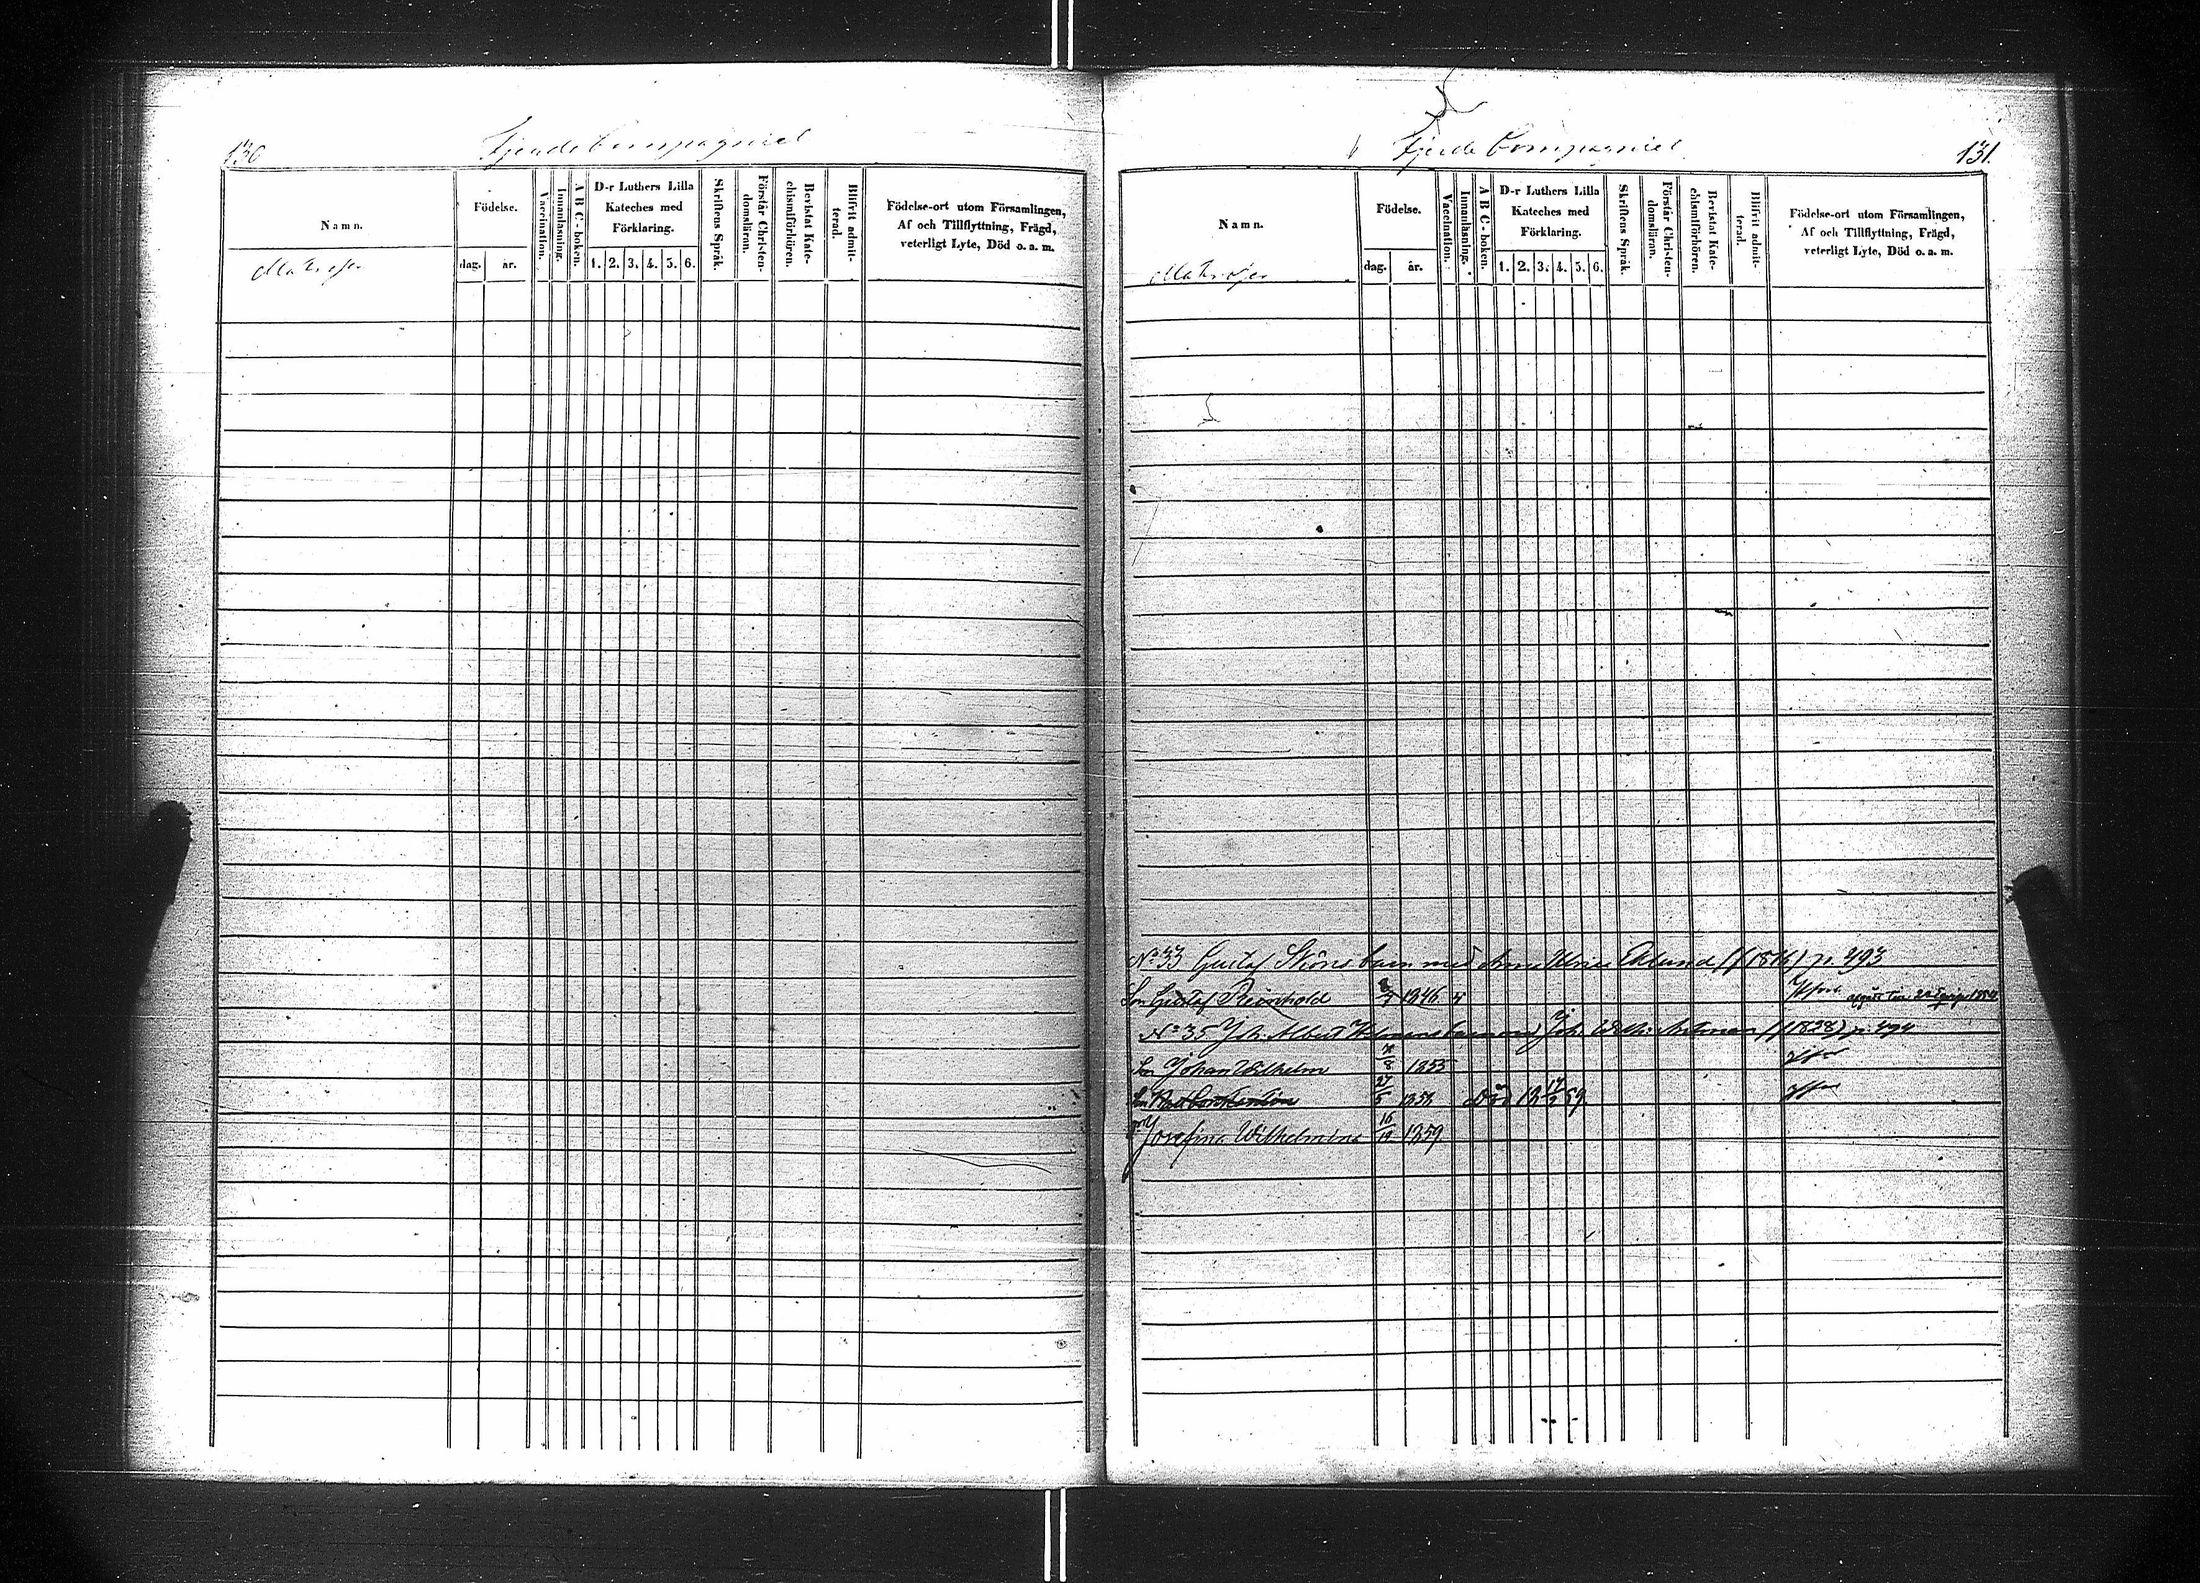 130
Fjerde Compagniet
Namn.
Födelse.
dag. år.
Vaccination.
Innanläsning.
A B C-boken.
D-r Luthers Lilla
Kateches med
Förklaring.
1. 2. 3. 4. 5. 6.
Skriftens Språk.
Förstår Chris-ten-
domsläran.
Bevistat Kate-
chismiförhören.
Blifvit admit-
terad.
Födelse-ort utom Församlingen,
Af och Tillflyttning, Frägd,
veterligt Lyte, Död o. a. m.
Matroser
Fjerde Compagniet
131.
Namn.
Födelse.
dag. år.
Vaccination.
Innanläsning.
A B C-boken.
D-r Luthers Lilla
Kateches med
Förklaring.
1. 2. 3. 4. 5. 6.
Skriftens Språk.
Förstår Chris-ten-
domsläran.
Bevistat Kate-
chismiförhören.
Blifvit admit-
terad.
Födelse-ort utom Församlingen,
Af och Tillflyttning, Frägd,
veterligt Lyte, Död o. a. m.
Matroser
No 33 Gustaf Sköns barn med Anna Ulrica Eklund (f 1816) p. 493
Son Gustaf Reinhold 1846
No 35 Joh. Albert (f 1828) p. 494
Son Johan Wilhelm 1855
Son 27/5 Död 18 59
Josefina Wilhelmina 16/12 1859